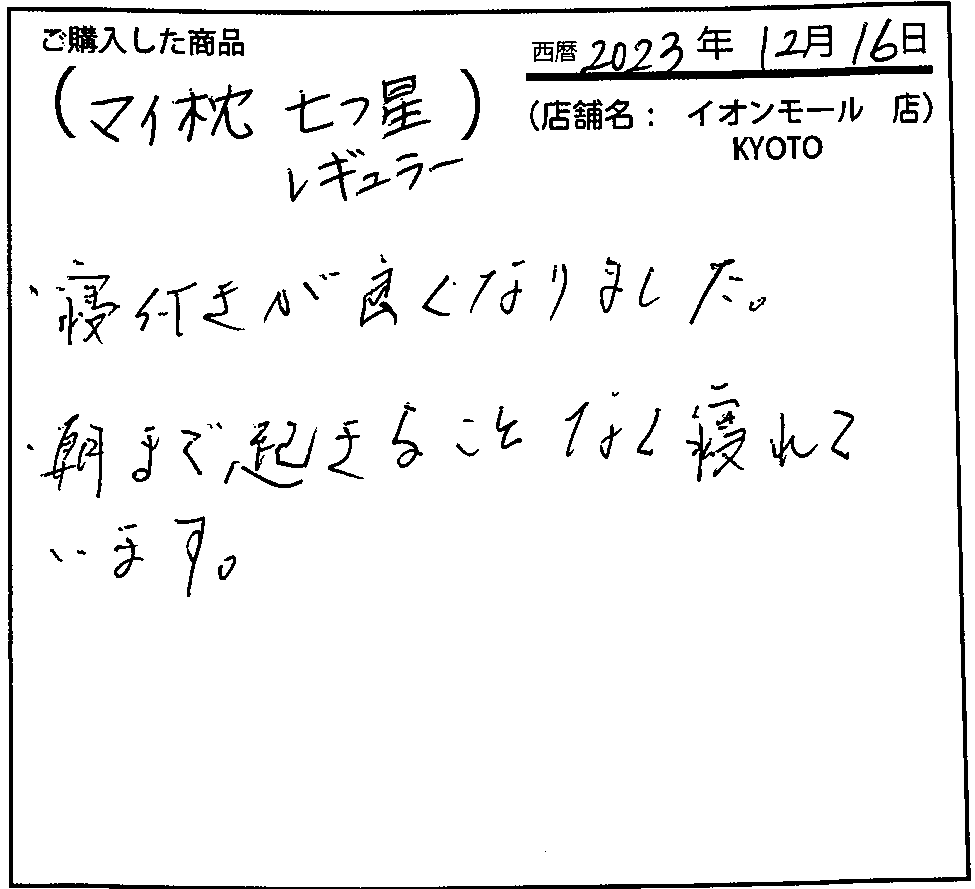 ご購入した商品
西暦 2023年 12月 16日
(マイ枕 七つ星)
レギュラー
(店舗名： イオンモール 店)
KYOTO
・寝付きが良くなりました。
・朝まで起きることなく寝れて
います。